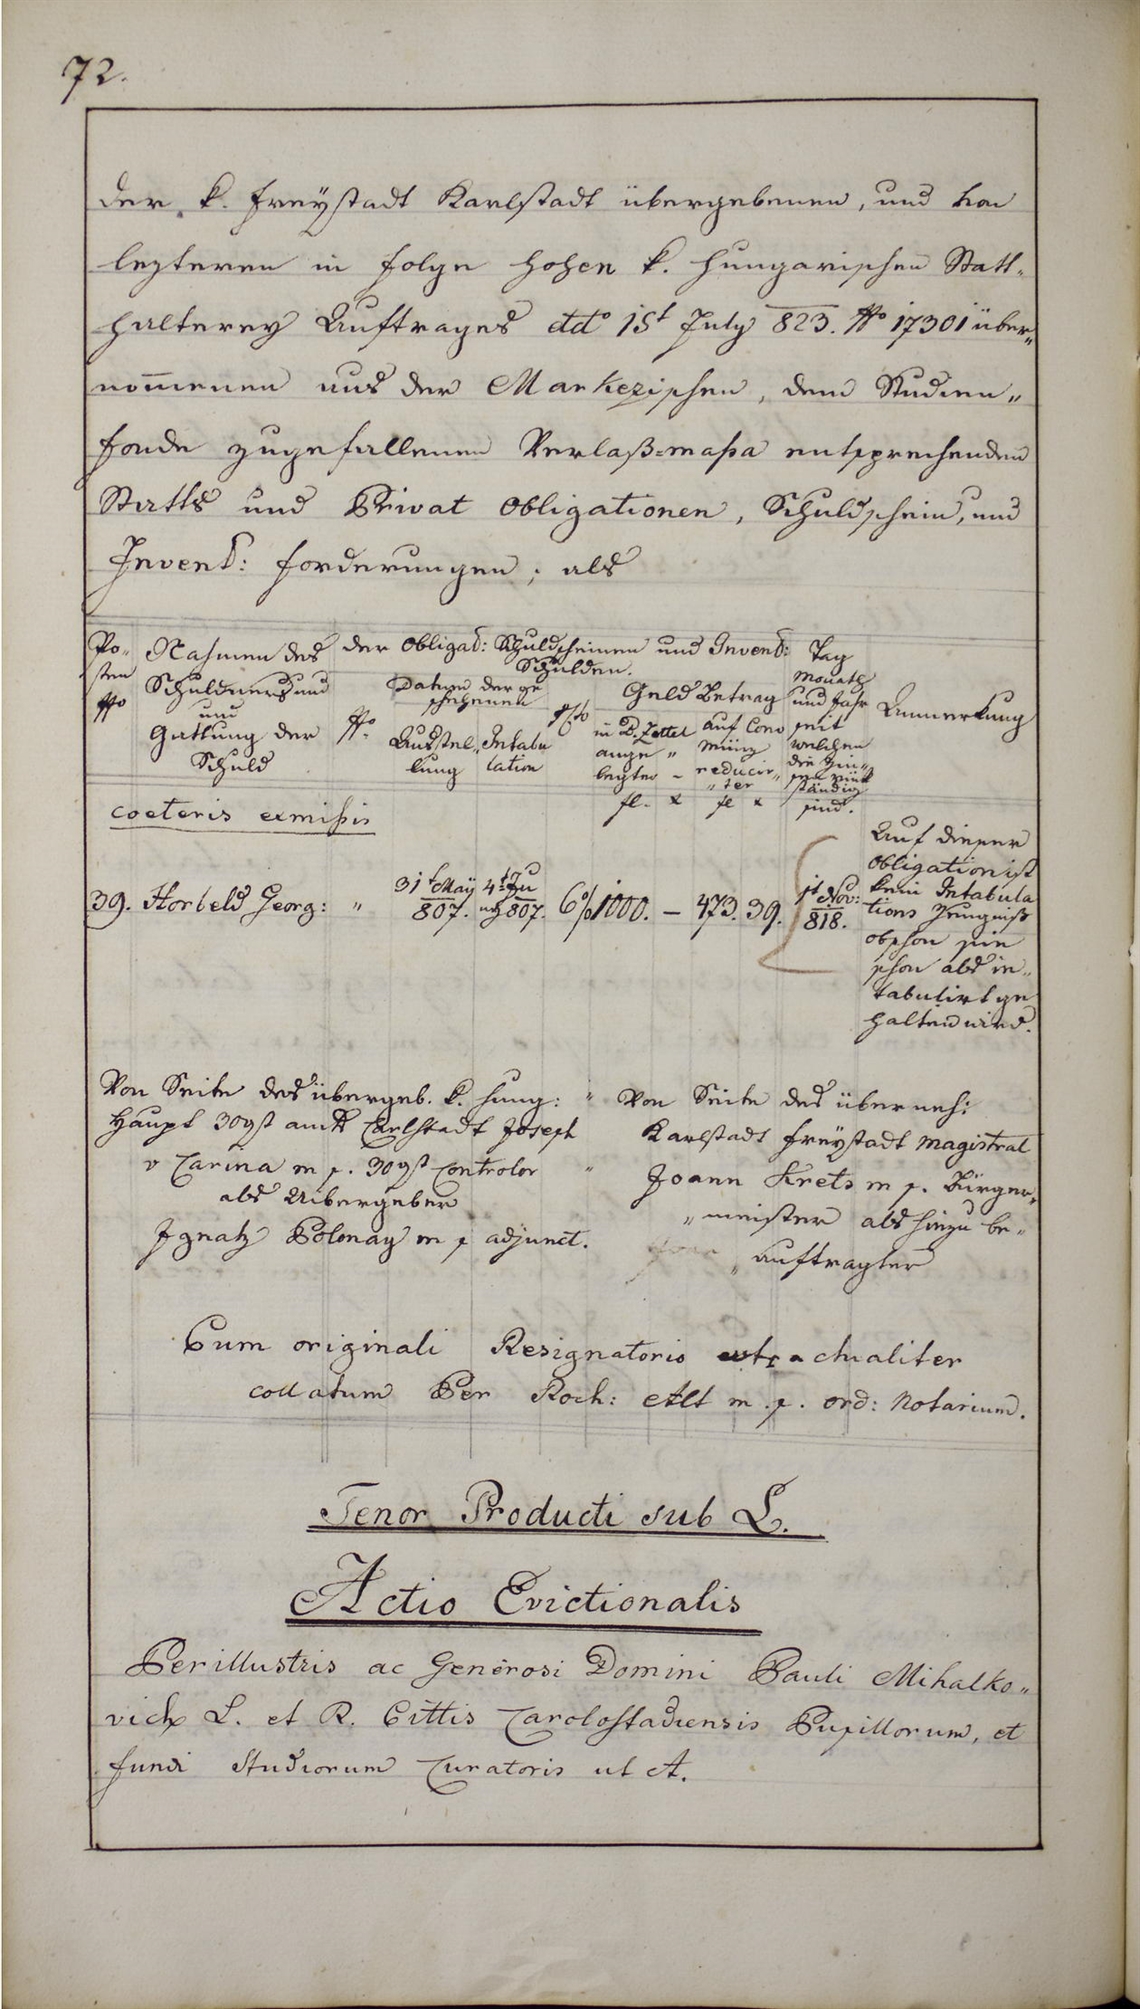 72.
der k. Freystadt Karlstadt übergebenen, und von
lezteren in Folge hohen k. hungarischen Statt-
halterey Auftrages ddto 15t July 823. No 17301 über„
nom̄enen aus der Markezischen, dem Studien„
fonde zugefallenen Verlaß=maßa entsprechenden
Staats und Privat Obligationen, Schuldschein, und
Invent: Forderungen, als
Po-
sten
No
Nahmen des
Schuldners und
und
Gattung der
Schuld
der Obligat: Schuldscheinen und Invent:
Schulden.
No
Datum der ge
schehenen
Ausstel„
lung
Intabu
lation
%
Geld Betrag
in B. Zettel
ange „
legter –
fl. x
auf Conv
münz
reducir„
„ter
fl x
Tag
Monath
und Jahr
seit
welchen
die Zin„
sen rück
ständig
sind.
Anmerkung
coeteris exmißis
39. Horbeld Georg: „ 31t May 807. 4t Ju ny 807. 6% 1000. – 473. 39. 1t Nov: 818.
Auf dieser
Obligation ist
kein Intabula
tions Zeugniß
obschon sie
schon als in„
tabulirt ge
halten wird.
Von Seite des übergeb. k. hung:
Haupt 30gst amts Carlstadt Joseph
v Carina m p. 30gst Controlor
als Uibergeber
Ignatz Polonay m p adjunct.
Von Seite des überneh:
Karlstadt Freystadt Magistrat
Joann Krets m p. Bürger„
„meister als hiezu be„
„auftragter
Cum originali Resignatorio extractualiter
collatum Per Roch: Alt m.p. ord: Notarium.
Tenor Producti sub L.
Actio Evictionalis
Perillustris ac Generosi Domini Pauli Mihalko„
vich L. et R. Cittis Carolostadiensis Pupillorum, et
fundi Studiorum Curatoris ut A.